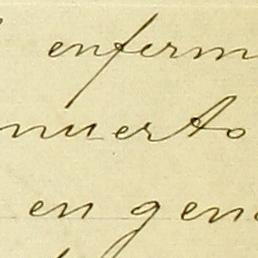 enferm
nuerto
en gen